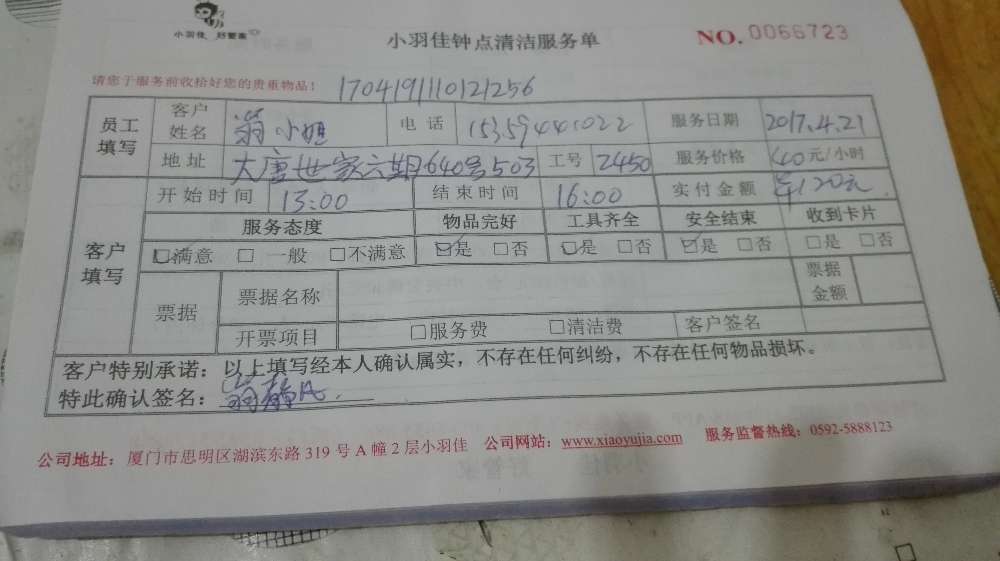 小羽佳 好管家
小羽佳钟点清洁服务单
NO.0066723
请您于服务前收拾好您的贵重物品! 170419110121256
员工填写 客户姓名 翁小姐 电话 15359441022 服务日期 2017.4.21
地址 大唐世家六期640号503 工号 2450 服务价格 40元/小时
客户填写 开始时间 13:00 结束时间 16:00 实付金额 120元
服务态度 物品完好 工具齐全 安全结束 收到卡片
☑满意 □一般 □不满意 ☑是 □否 ☑是 □否 ☑是 □否 □是 □否
票据 票据名称 票据金额
开票项目 □服务费 □清洁费 客户签名
客户特别承诺：以上填写经本人确认属实，不存在任何纠纷，不存在任何物品损坏。
特此确认签名：翁静
公司地址：厦门市思明区湖滨东路 319 号 A 幢 2 层小羽佳 公司网站：www.xiaoyujia.com 服务监督热线：0592-5888123